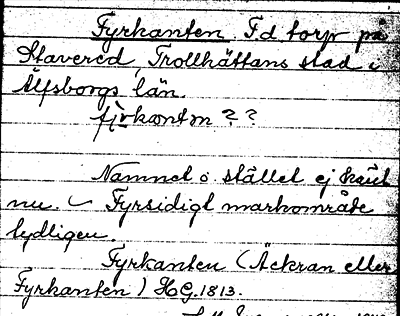 Fyrkanten. Fd torp på
Stavered, Trollhättans stad i
Älfsborgs län.
fy̌rkantn ? ?
Namnet o. stället ej känt
nu. ‒ Fyrsidigt markområde
tydligen.
Fyrkanten (Äckran eller
Fyrkanten) HG. 1813.